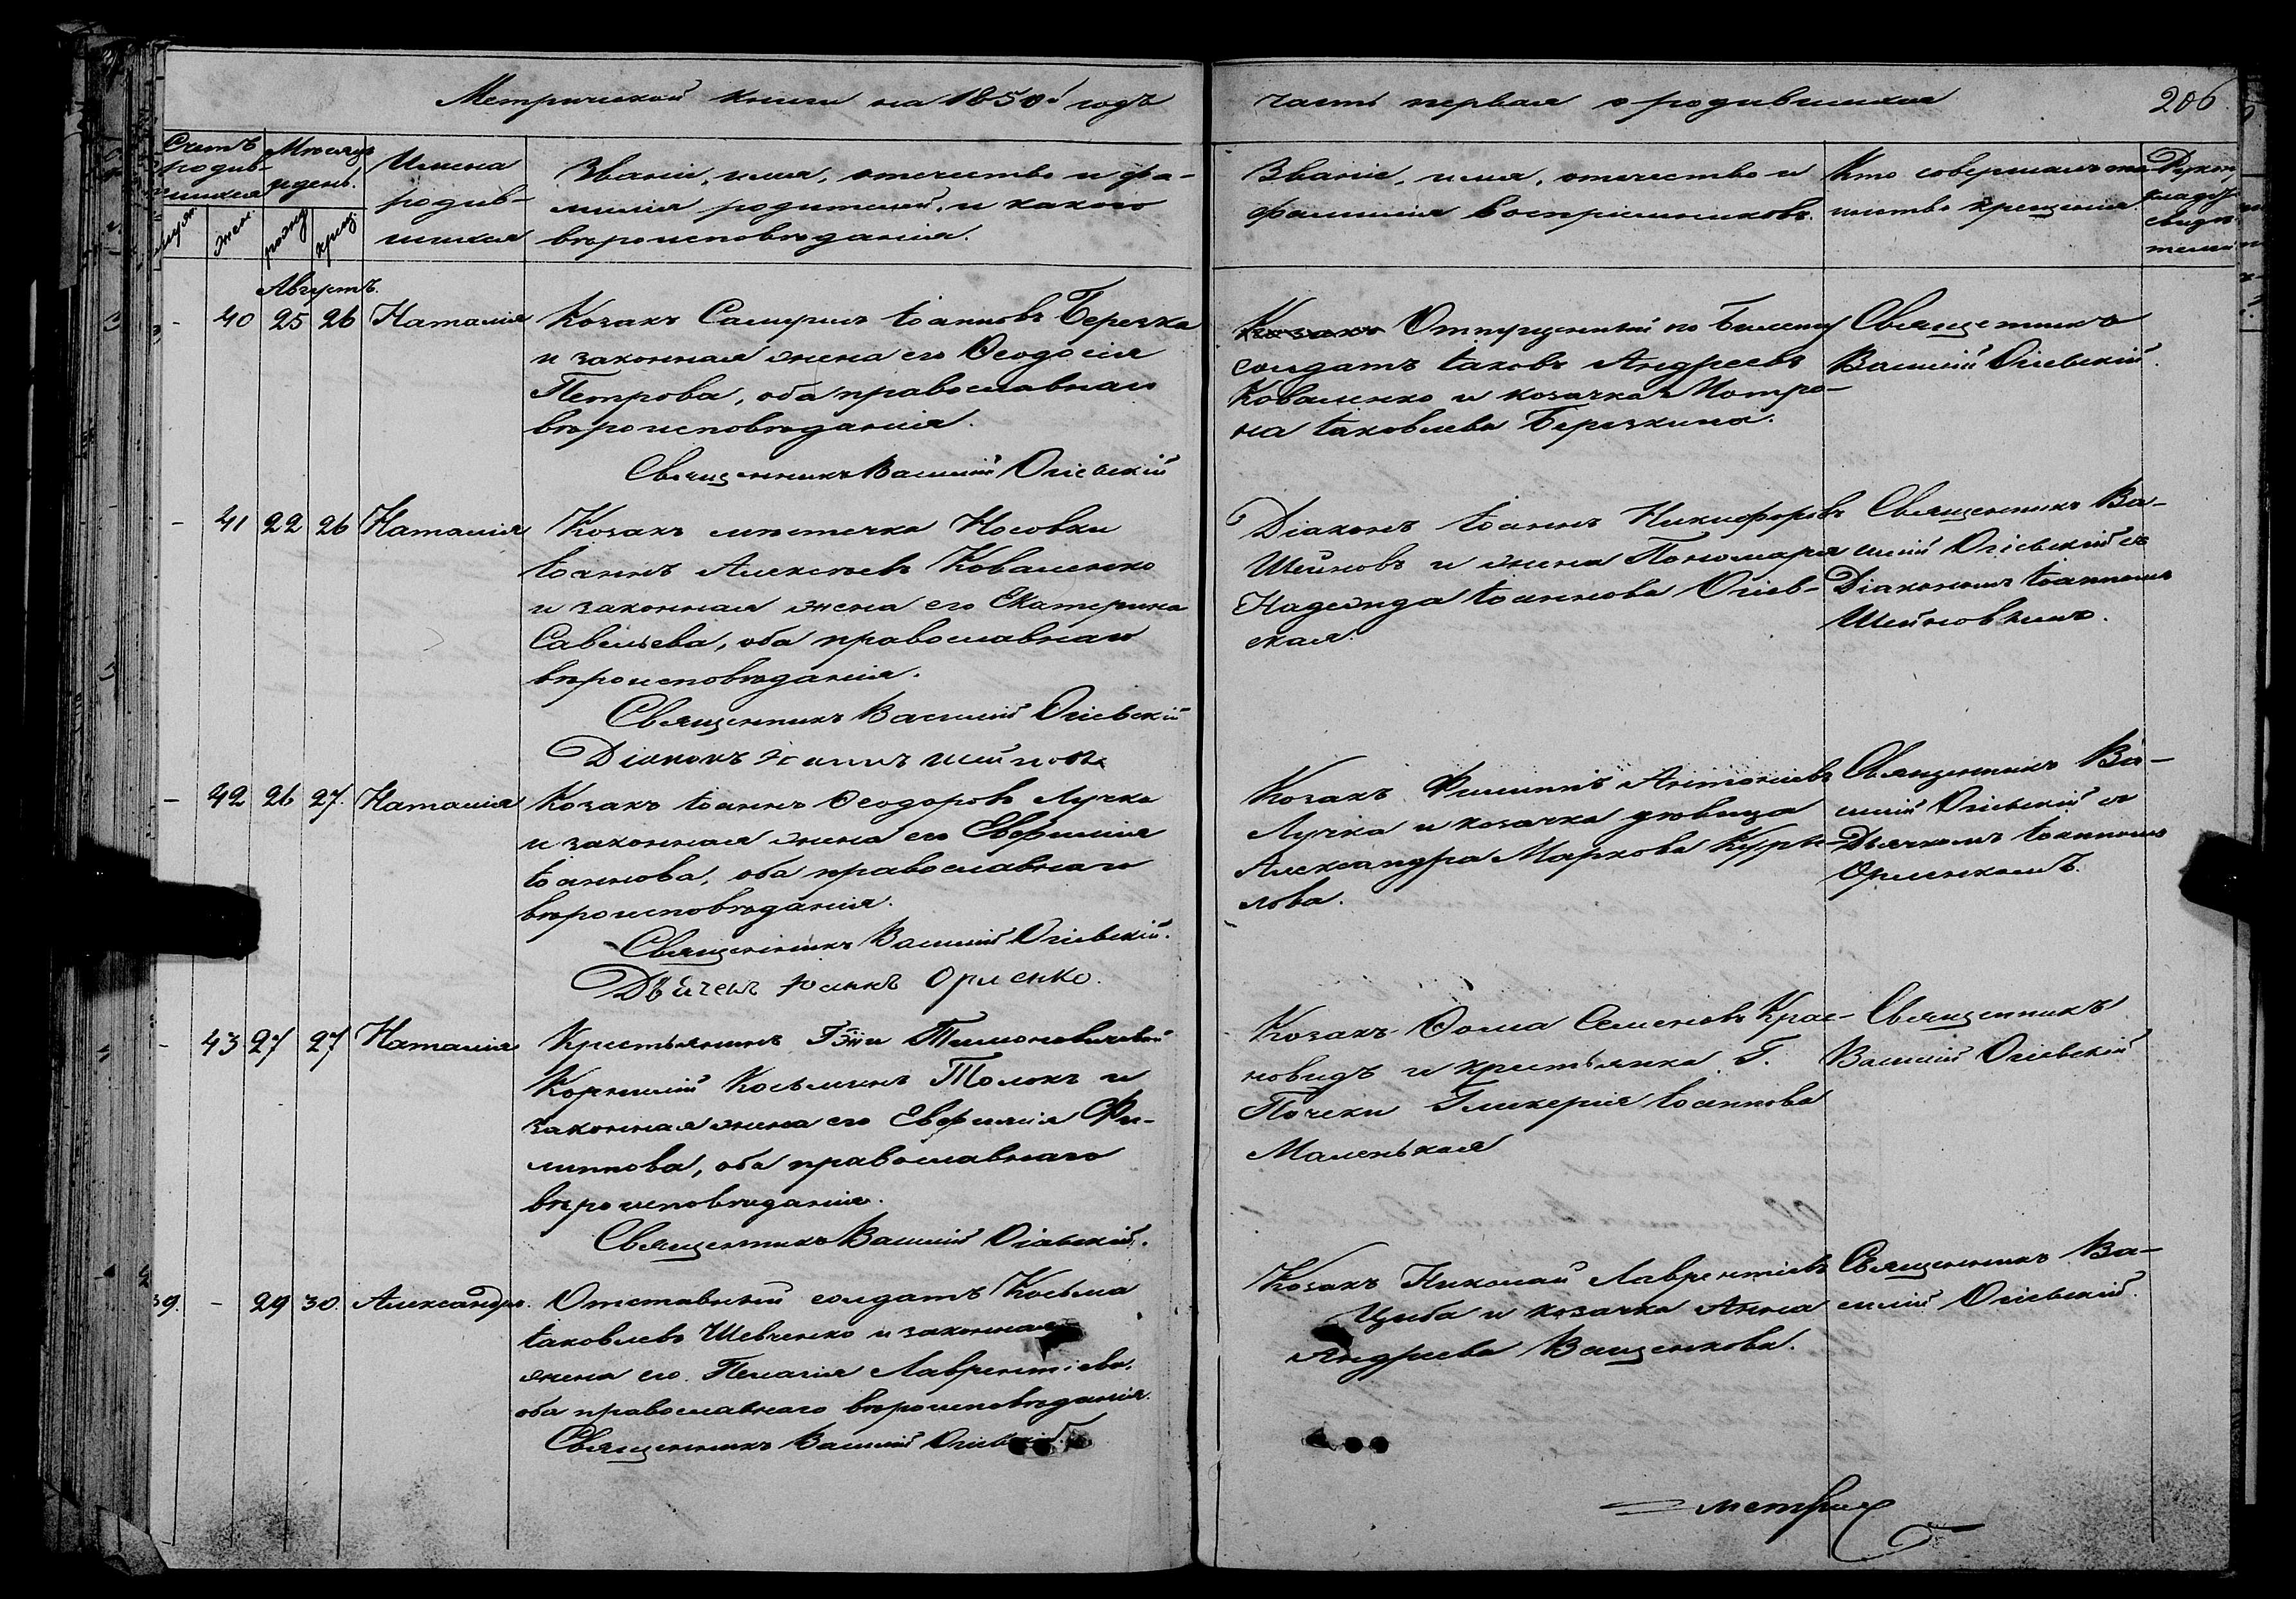 Метрической книги на 1850й годъ
часть первая о родившихся
206
Счетъ родив-шихся
Мѣсяцъ и день.
муж.
жен.
рожд
крещ.
Имена
родив-
шихся
Званіе, имя, отечество и фа-
милія родителей, и какого
вѣроисповѣданія.
Званіе, имя, отечество и
фамилія воспріемниковъ.
Кто совершалъ таинство крещенія.
Августъ.
- 40 25 26 Наталия
Козакъ Іоанновъ Березка
и законная жена его Ѳеодосія
Петрова, оба православнаго
вѣроисповѣданія.
Священникъ Василій Огіевскій
Отпущенный по билету
солдатъ Іаковъ Андреевъ
Коваленко и козачка Мотро-
на Іаковлева Березкина.
Священникъ
Василій Огіевскій.
- 41 22 26 Наталія
Козакъ мѣстечка Носовки
Іоаннъ Алексѣевъ Коваленко
и законная жена его Екатерина
Савельева, оба православнаго
вѣроисповѣданія.
Священникъ Василій Огіевскій
Діаконъ Іоаннъ Шейновъ
Діаконъ Іоаннъ Никифоровъ
Шейновъ и жена Пономаря
Надежда Іоаннова Огіев-
ская.
Священникъ Ва-
силій Огіевскій съ
Діакономъ Іоанномъ
Шейновымъ.
- 42 26 27. Наталія
Козакъ Іоаннъ Ѳеодоровъ Лучка
и законная жена его Евфимія
Іоаннова, оба православнаго
вѣроисповѣданія.
Священникъ Василій Огіевскій.
Дьячекъ Іоаннъ Орленко.
Козакъ Филиппъ Антоніевъ
Лучка и козачка дѣвица
Александра Маркова Кури-
лова.
Священникъ Ва-
силій Огіевскій съ
Дьячкомъ Іоанномъ
Орленкомъ.
- 43 27 27 Наталія
Крестьянинъ Г-жи Тимоновичевой
Корнилій Косьминъ Толокъ и
законная жена его Евфимія Фи-
липпова, оба православнаго
вѣроисповѣданія.
Священникъ Василій Огіевскій.
Козакъ Ѳома Семеновъ Крас-
новидъ и крестьянка Г.
Почеки Гликерія Іоаннова
Маленькая
Священникъ
Василій Огіевскій
39. - 29 30. Александръ.
Отставный солдатъ Косьма
Іаковлевъ Шевченко и законная
жена его Пелагія Лаврентіева,
оба православнаго вѣроисповѣданія.
Священникъ Василій Огіевскій.
Козакъ Николай Лаврентіевъ
Цыба и козачка Анна
Андреева Ващенкова.
Священникъ Ва-
силій Огіевскій.